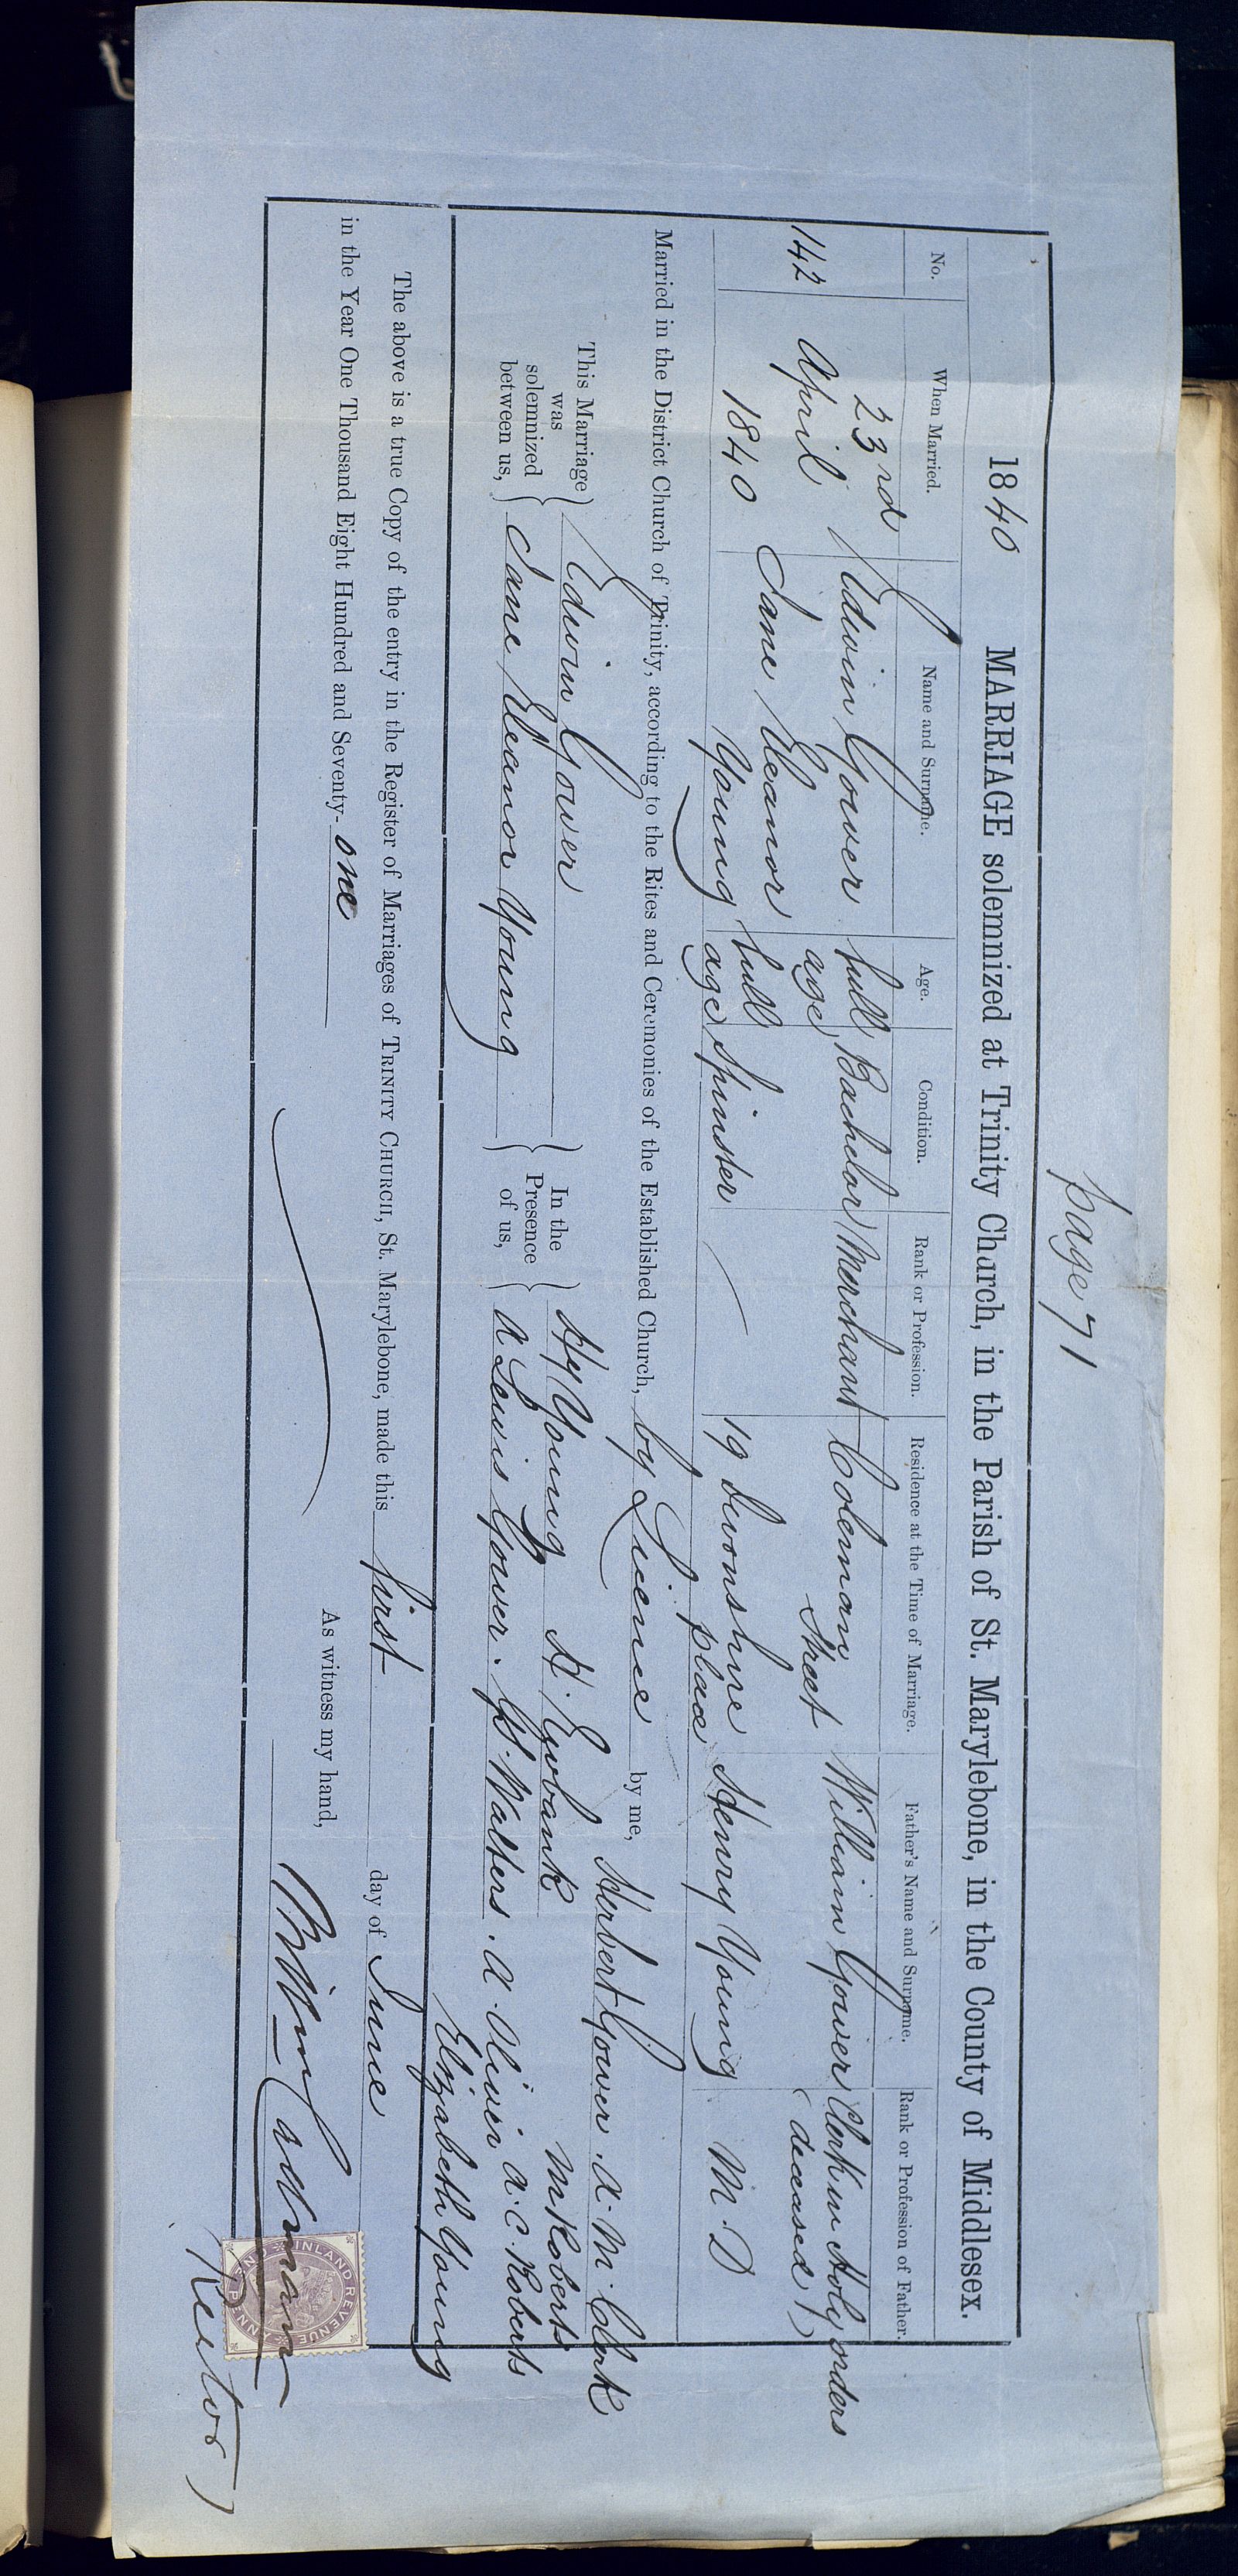 page 71
1840 MARRIAGE solemnized at Trinity Church, in the Parish of St. Marylebone, in the County of Middlesex.
No. When Married. Name and Surname. Age. Condition. Rank or Profession. Residence at the Time of Marriage. Father's Name and Surname. Rank or Profession of Father.
23rd Edwin Gower full Bachelor Merchant Coleman William Gower Clerk in Holy orders
142 April age Street (deceased)
Jane Eleanor full
1840 Young age Spinster 19 Devonshire Henry Young M.D
place
Married in the District Church of Trinity, according to the Rites and Ceremonies of the Established Church, by Licence by me, Herbert Gower. A.M. Clerk
This Marriage was solemnized between us, Edwin Gower In the Presence of us, Hy Young H. Ewbank M Roberts
Jane Eleanor Young A Lewis Gower. G. Walters. A. Oliver A.C. Roberts
Elizabeth Young
The above is a true Copy of the entry in the Register of Marriages of TRINITY CHURCH, St. Marylebone, made this first day of June
in the Year One Thousand Eight Hundred and Seventy-one
As witness my hand, Cadman
Rector
INLAND REVENUE